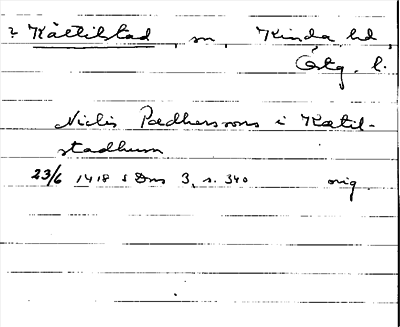 ? Kättilstad, sn, Kinda hd,
Östg. l.
Niclis Pædherssons i Kætil-
stadhum
23/6 1418 SDns 3, s. 340 orig.